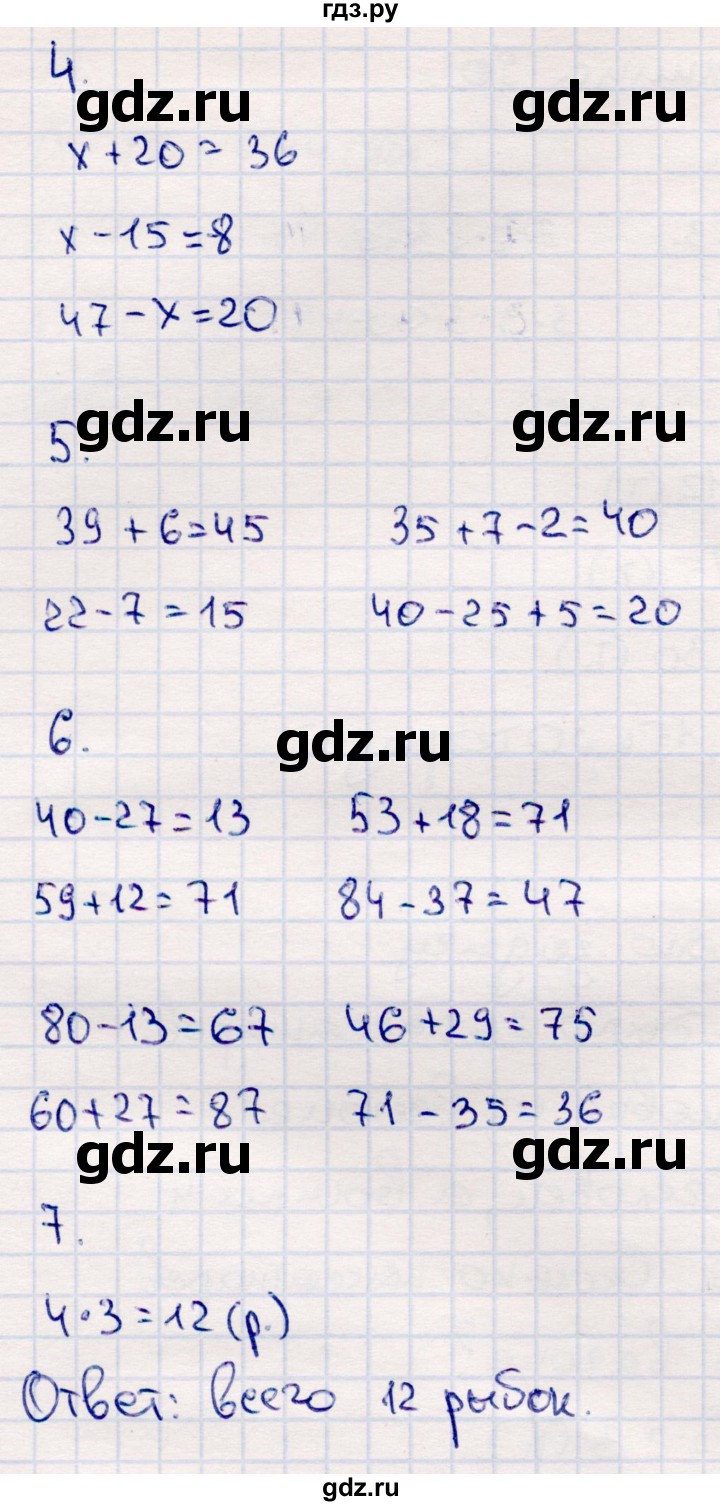 гдз.ру
4.
gdz.ru gdz.ru
x + 20 = 36
x - 15 = 8
47 - x = 20
gdz.ru gdz.ru
5.
39 + 6 = 45 35 + 7 - 2 = 40
22 - 7 = 15 40 - 25 + 5 = 20
6.
gdz.ru
40 - 27 = 13 53 + 18 = 71
59 + 12 = 71 84 - 37 = 47
80 - 13 = 67 46 + 29 = 75
60 + 27 = 87 71 - 35 = 36
gdz.ru gdz.ru
7.
4 · 3 = 12 (р.)
Ответ: всего 12 рыбок.
gdz.ru